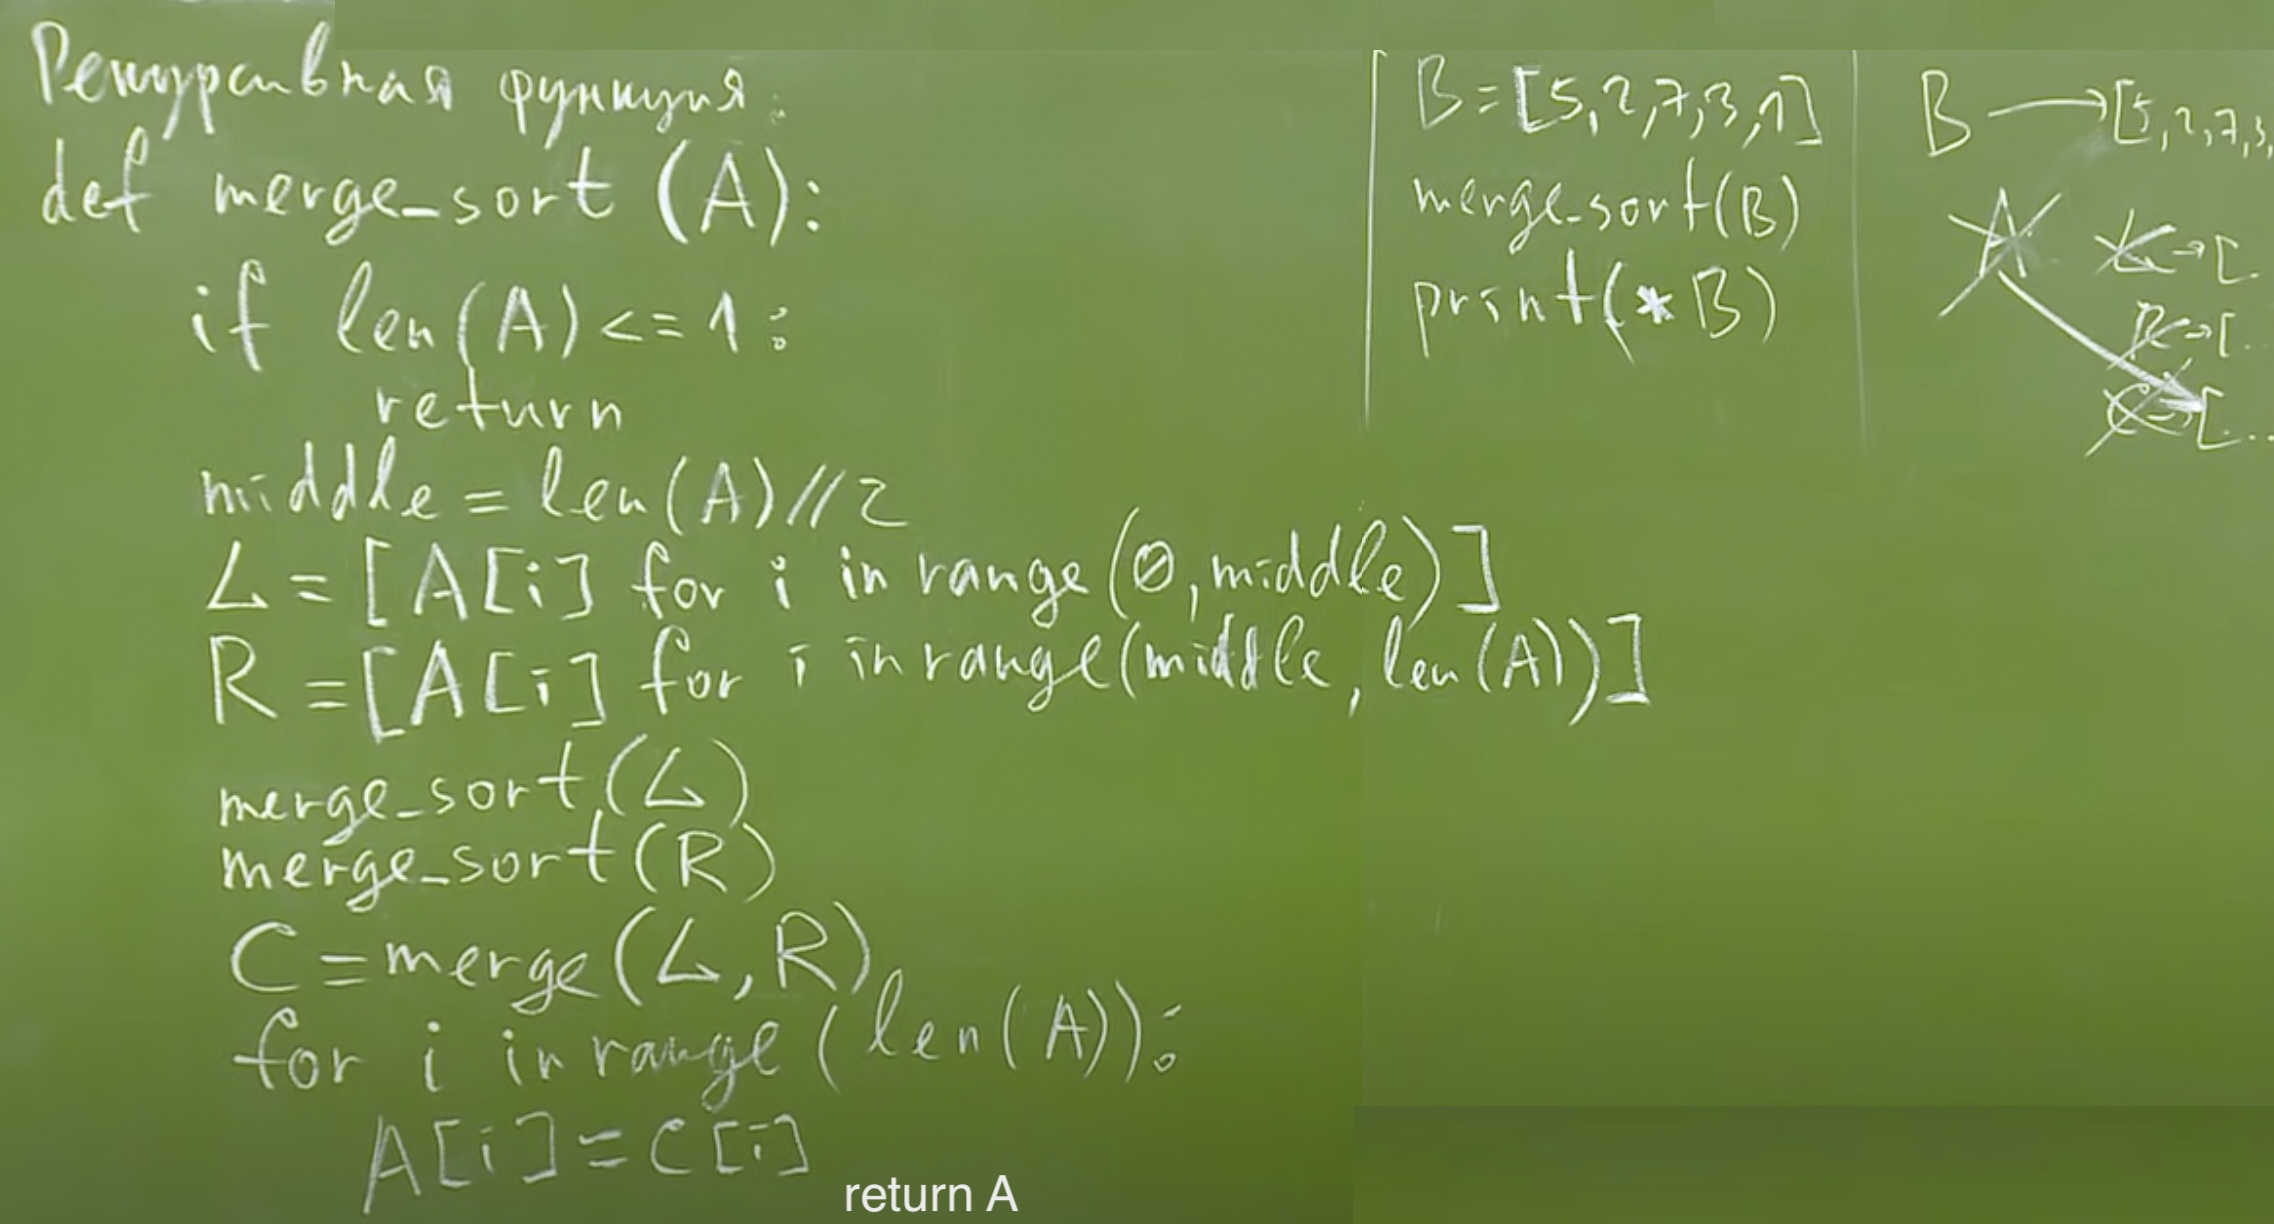 Рекурсивная функция:
def merge_sort (A):
if len(A) <= 1:
return
middle = len(A)//2
L = [A[i] for i in range(0, middle)]
R = [A[i] for i in range(middle, len(A))]
merge_sort(L)
merge_sort(R)
C = merge(L, R)
for i in range(len(A)):
A[i] = C[i]
return A
B = [5,2,7,3,1]
merge_sort(B)
print(*B)
B → [5,2,7,3,
A
L → [.
R → [..
C → [...